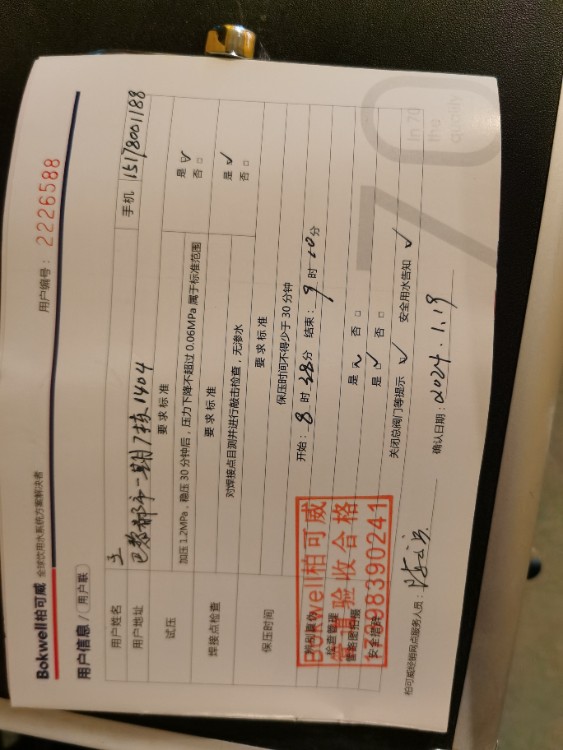 Bokwell柏可威 全球饮用水系统方案解决者
用户编号：2226588
用户信息/用户联
用户姓名 王 手机 15178001188
用户地址 巴黎都市二期7栋1404
要求标准
试压 加压1.2MPa，稳压30分钟后，压力下降不超过0.06MPa属于标准范围 是 ☑ 否 □
要求标准
焊接点检查 对焊接点目测并进行敲击检查，无渗水 是 ☑ 否 □
要求标准
保压时间 保压时间不得少于30分钟
开始：8时38分 结束：9时10分
是 ☑ 否 □
是 ☑ 否 □
安全提醒 关闭总阀门等提示 ✓ 安全用水告知 ✓
Bokwell柏可威
验收合格
17398390241
柏可威经销网点服务人员： 确认日期：2024.1.19
70
In 70
the
quality